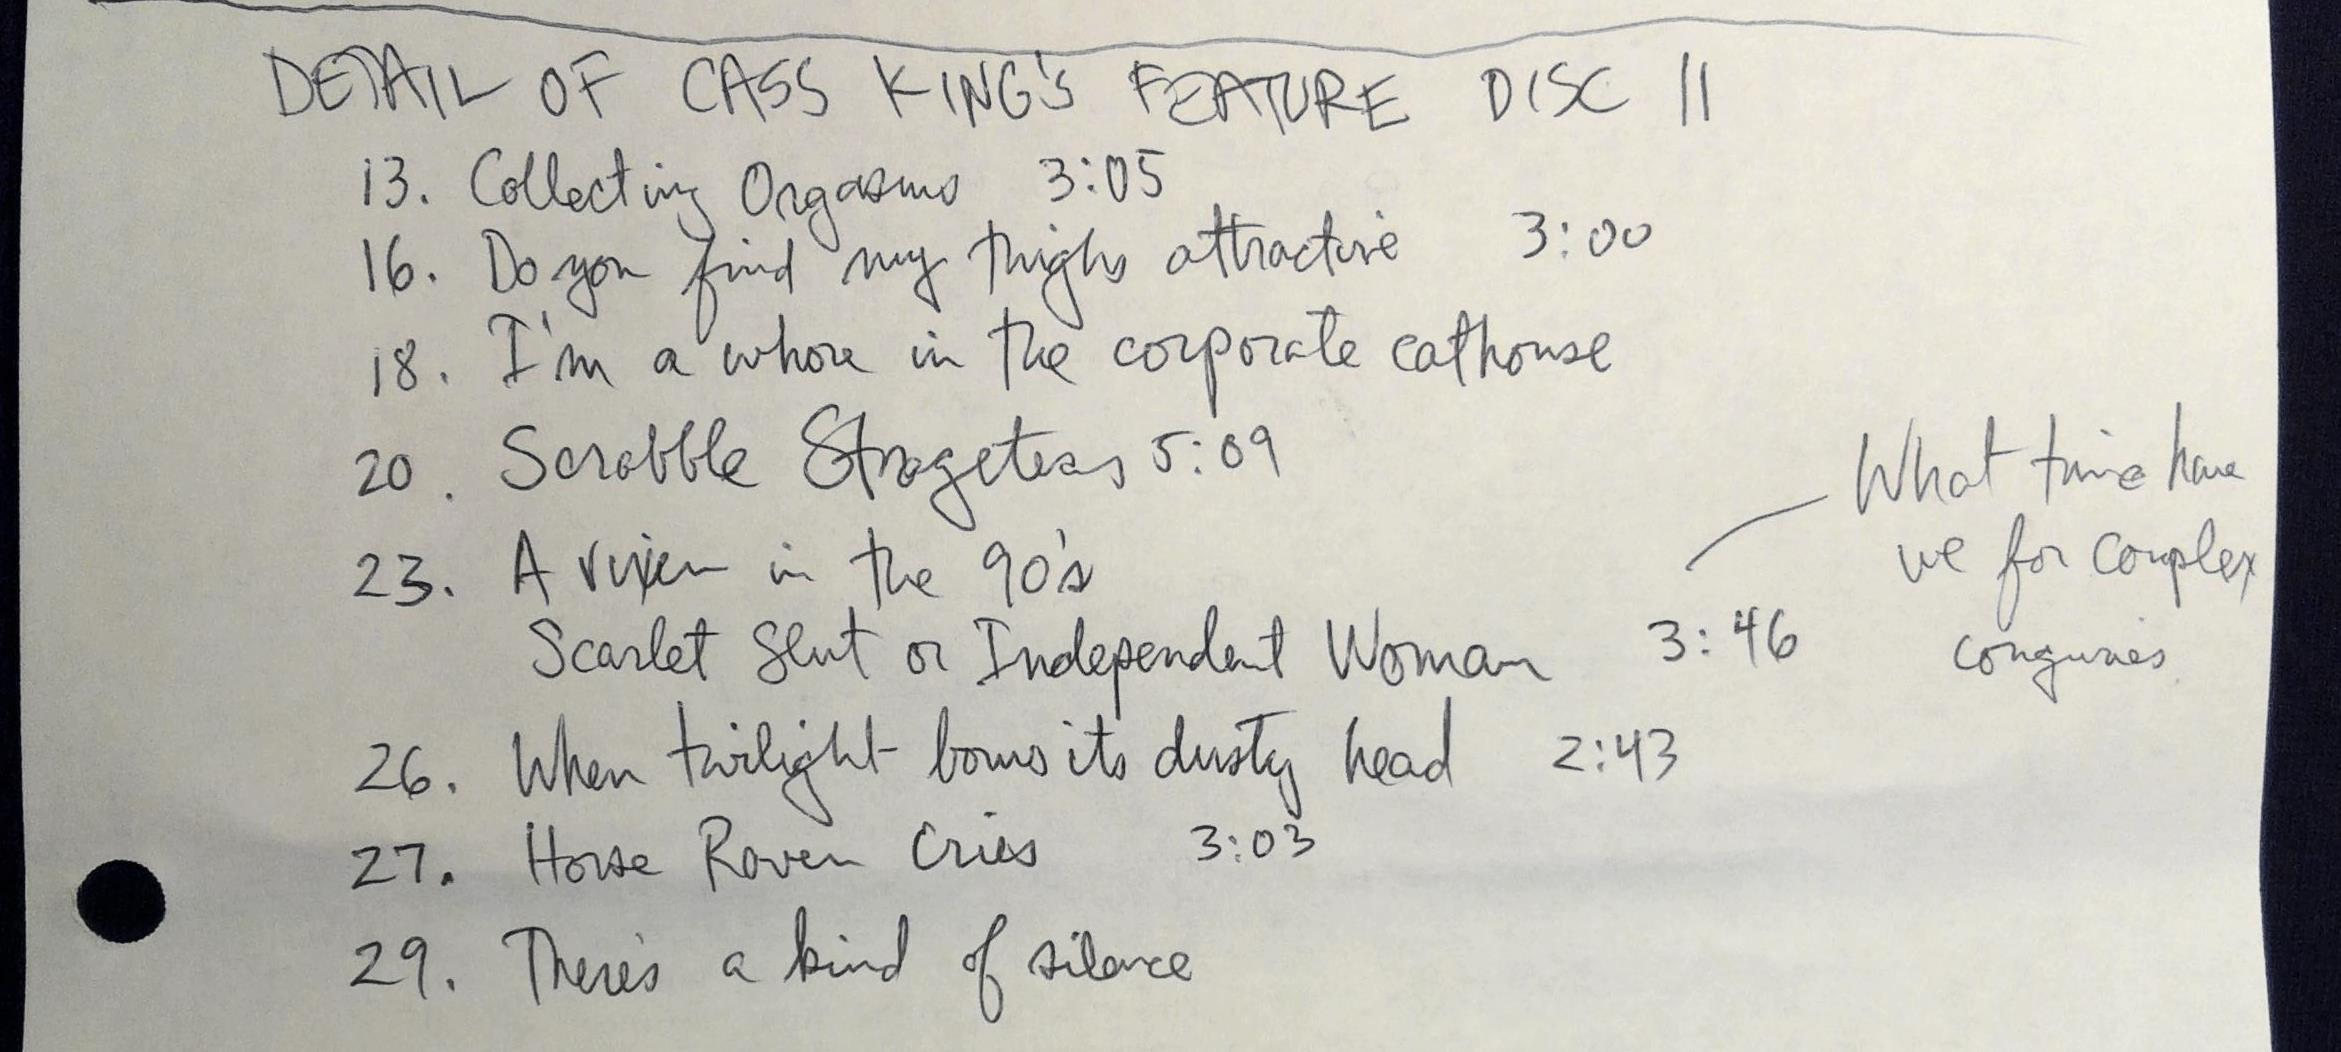 DETAIL OF CASS KING'S FEATURE DISC II
13. Collecting Orgasms 3:05
16. Do you find my thighs attractive 3:00
18. I'm a whore in the corporate cathouse
20. Scrabble Strageteas 5:09
23. A vixen in the 90's
Scarlet Slut or Independent Woman 3:46
What time have
we for complex
26. When twilight bows its dusty head 2:43
27. Horse Raven Cries 3:03
29. There's a kind of silence